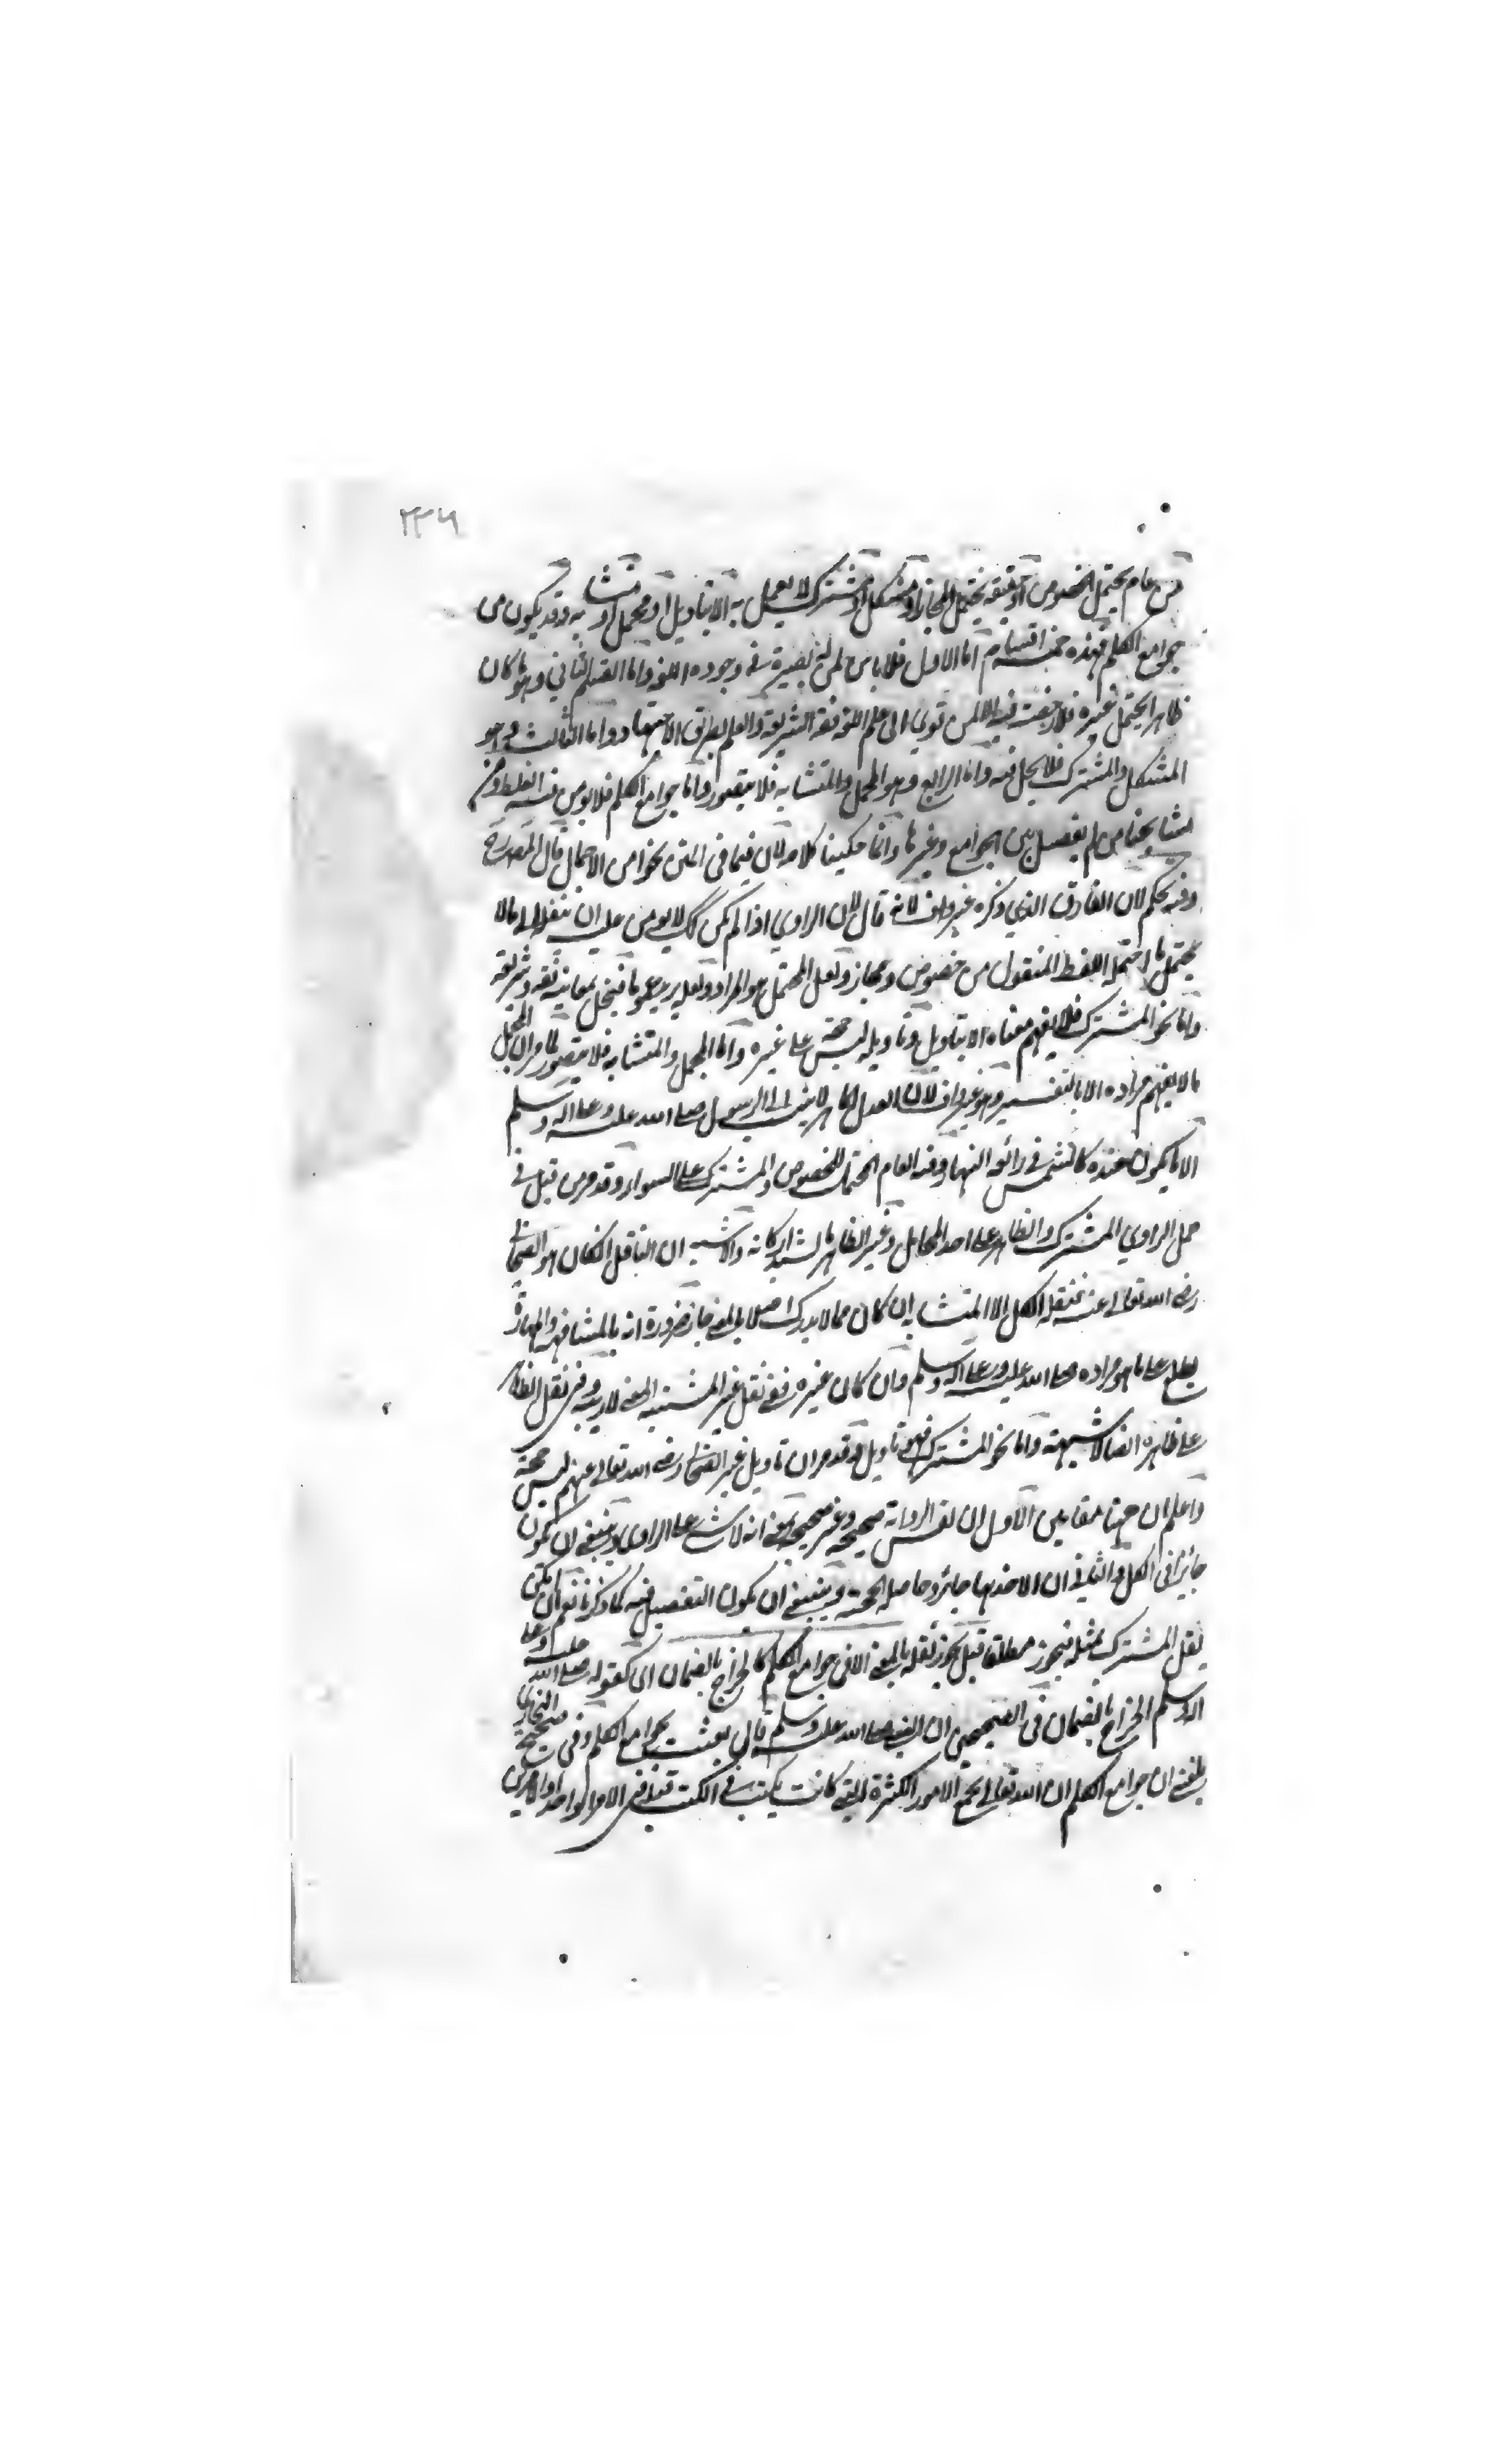 ٢٣٦
من عام يحتمل الخصوص او حقيقة يحتمل المجاز او مشكل او مشترك لا يعمل به الا بتاويل او مجمل او متشابه وقد يكون من
جوامع الكلم فهذه خمسة اقسام اما الاول فلا باس لمن له بصيرة في وجوه اللغة واما القسم الثاني وهو ما كان
ظاهرا يحتمل غيره فلا رخصة فيه الا لمن حوى الى علم اللغة فقه الشريعة والعلم بطريق الاجتهاد واما الثالث وهو
المشكل والمشترك فلا يحل فيه واما الرابع وهو المجمل والمتشابه فلا يتصور واما جوامع الكلم فلا يومن فيه الغلط ومن
مشايخنا من لم يفصل بين الجوامع وغيرها وانما حكينا كلامه لان فيما في المتن نحوا من الاجمال قال المصرح
وفيه تحكم لان الفارق الذي ذكره غير واف لانه قال لان الراوي اذا لم يكن كك لا يومن عليه ان ينقله الى ما لا
يحتمل ما احتمله اللفظ المنقول من خصوص ومجاز ولعل المحتمل هو المراد ولعله يزيد عموما فيخل بمعانيه فقه وشريعة
واما نحو المشترك فلا يفهم معناه الا بتاويل وتاويله ليس حجة على غيره واما المجمل والمتشابه فلا يتصور لما مر ان المجمل
ما لا يفهم مراده الا بالتفسير وهو غير واف لان العدل الماهر لا ينسب الى الرسول صلى الله عليه وعلى اله وسلم
الا ما يكون عنده كالشمس في رائعة النهار وفيه العام المحتمل للخصوص والمشترك على السواء وقد مر من قبل في
حمل الراوي المشترك والظاهر على احد المحامل وغير الظاهر ما كانه والاشبه ان الناقل ان كان هو الصحابي
رضي الله تعالى عنه فنقله الكل الا المتشابه ان كان مما لا يدرك اصلا بالمعنى جائز ضرورة انه بالمشافهة والمهارة
يطلع على ما هو مراده صلى الله عليه وعلى اله وسلم وان كان غيره ففي نقل غير المشتبه المعنى لا ريب وفي نقل الظاهر
على ظاهره ايضا لا شبهة واما نحو المشترك فهو تاويل وقد مر ان تاويل غير الصحابي رضي الله تعالى عنهم ليس حجة
واعلم ان ههنا مقامين الاول ان نفس الرواية صحيحة وغير صحيحة بمعنى انه لا شيء على الراوي وينبغي ان يكون
جائزا في الكل والثاني ان الاخذ بها جائز وحاصله الحجية وينبغي ان يكون التفصيل فيه كما ذكرنا نعم ان يكن
نقل المشترك بمثله فيجوز مطلقا قيل يجوز نقله بالمعنى الا في جوامع الكلم كالخراج بالضمان اى كقوله صلى الله عليه وعلى
اله وسلم الخراج بالضمان في الصحيحين ان النبي صلى الله عليه وسلم قال بعثت بجوامع الكلم وفي صحيح البخاري
بلغني ان جوامع الكلم ان الله تعالى يجمع الامور الكثيرة التي كانت يكتب في الكتب قبله في الامر الواحد او الامرين